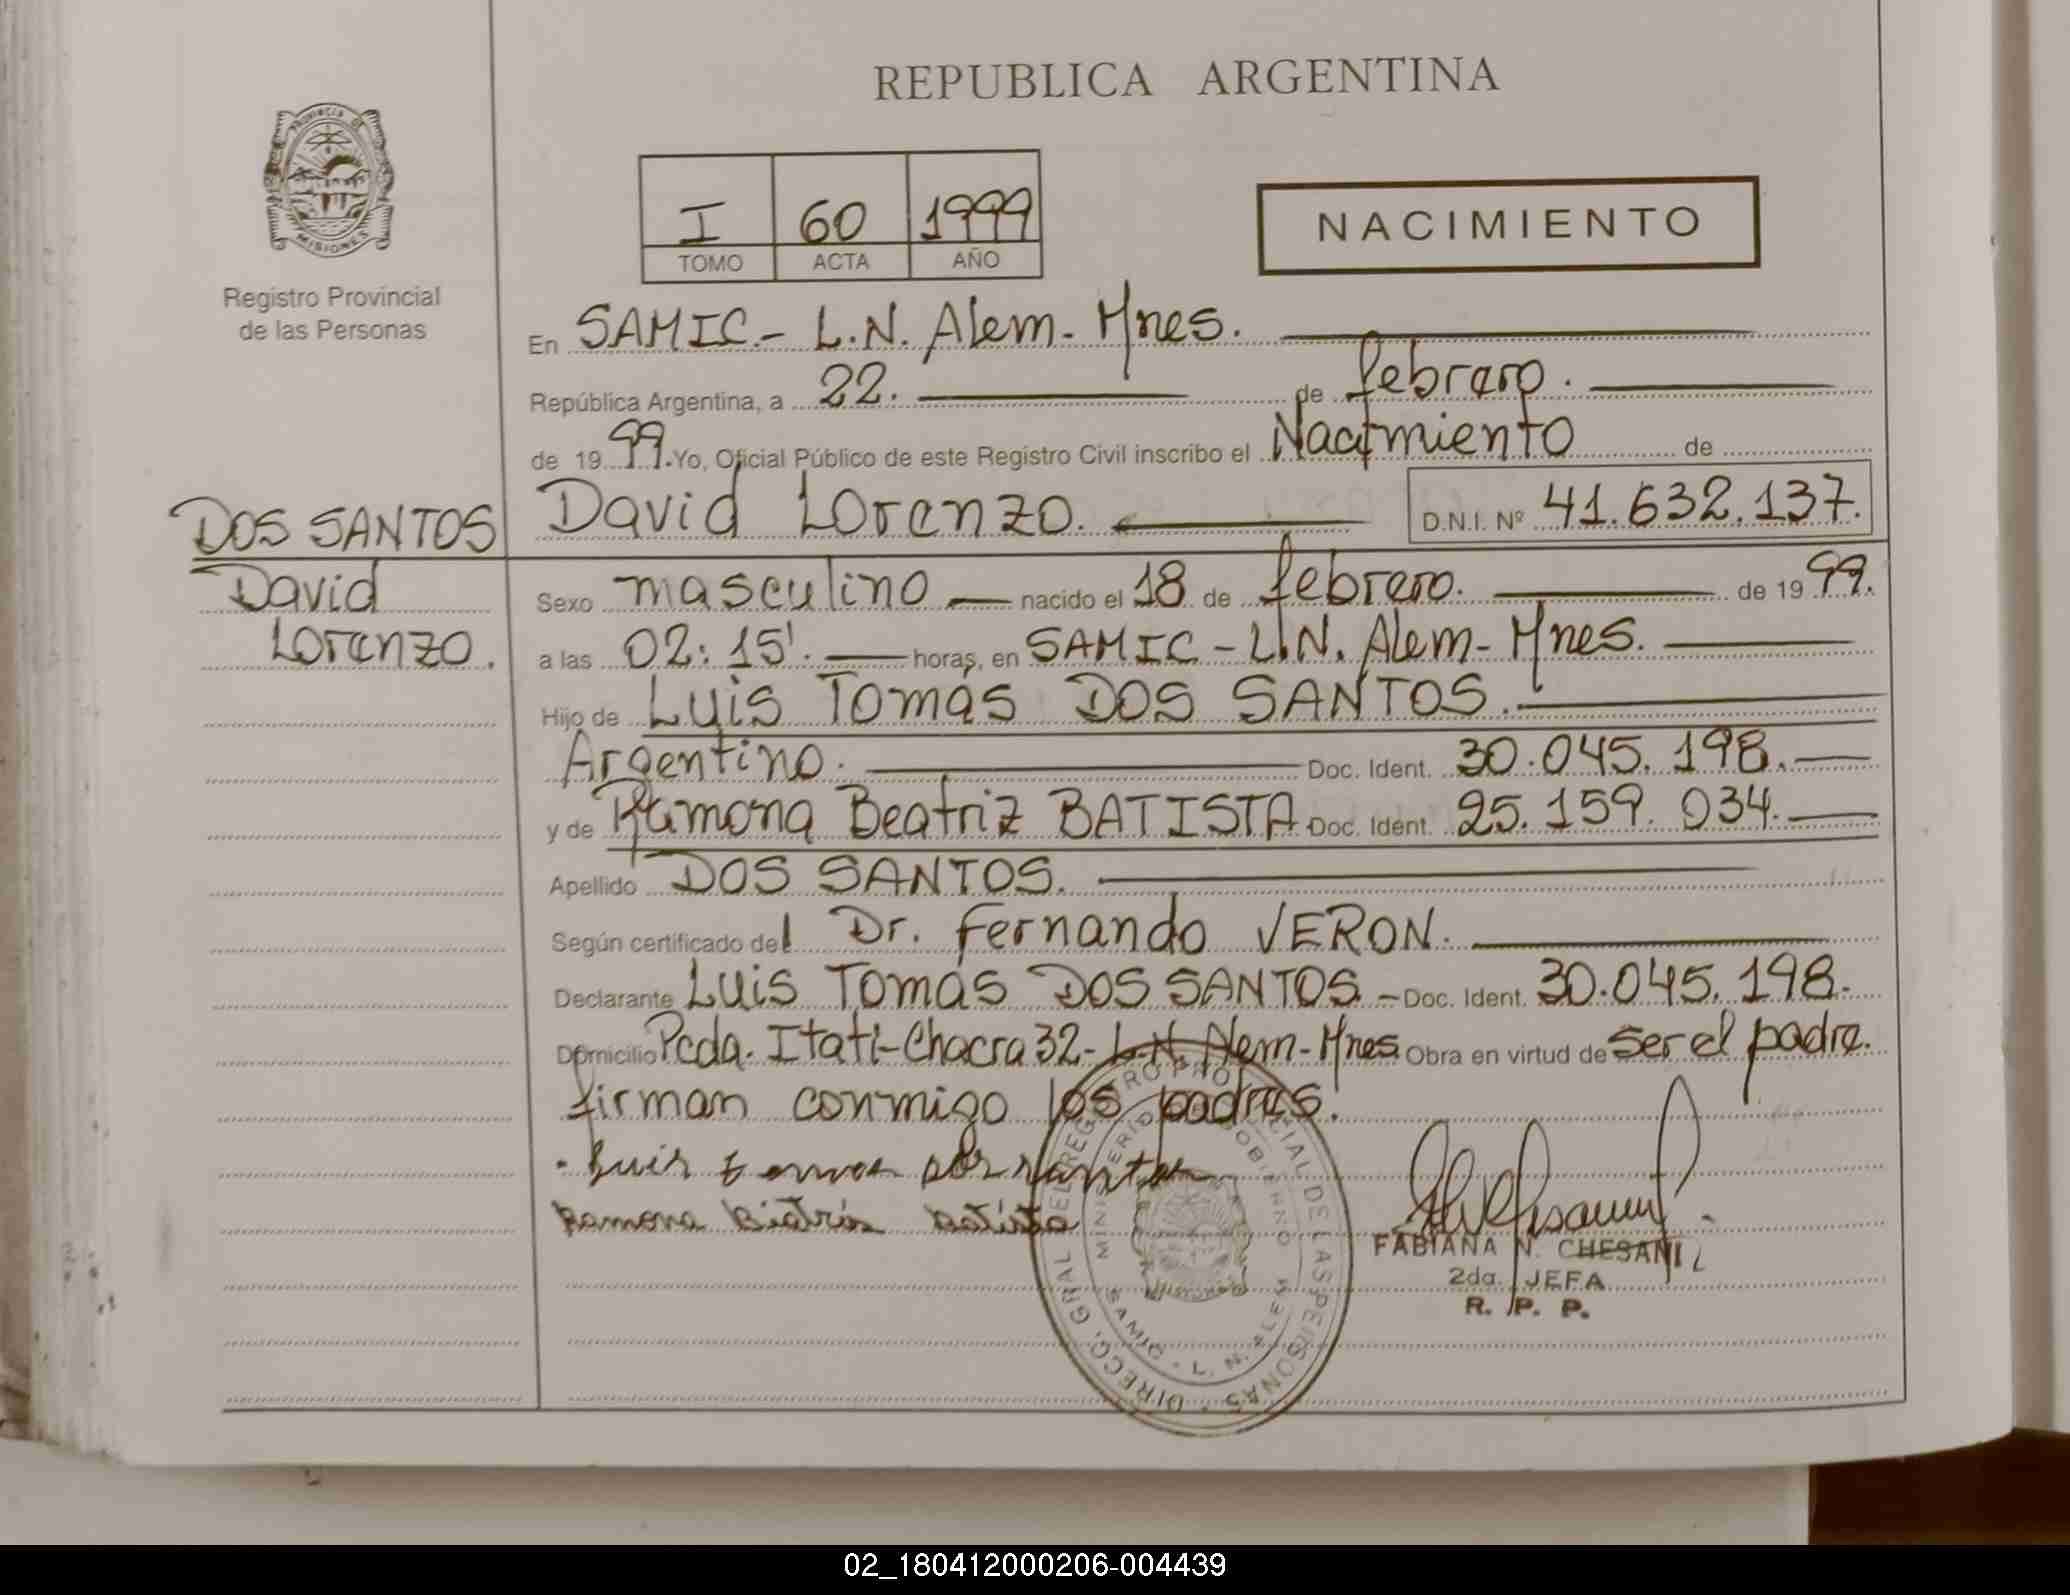 REPUBLICA ARGENTINA
PROVINCIA DE MISIONES
Registro Provincial
de las Personas
I 60 1999
TOMO ACTA AÑO
NACIMIENTO
En SAMIC.- L.N. Alem- Mnes.
República Argentina, a 22. de febrero.
de 1999. Yo, Oficial Público de este Registro Civil inscribo el Nacimiento de
DOS SANTOS David Lorenzo. D.N.I. Nº 41.632.137.
David Sexo masculino nacido el 18 de febrero. de 1999.
Lorenzo. a las 02:15'. horas, en SAMIC - L.N. Alem- Mnes.
Hijo de Luis Tomás DOS SANTOS.
Argentino. Doc. Ident. 30.045.198.
y de Ramona Beatriz BATISTA Doc. Ident. 25.159.034.
Apellido DOS SANTOS.
Según certificado del Dr. Fernando VERON.
Declarante Luis Tomás DOS SANTOS - Doc. Ident. 30.045.198.
Domicilio Pcda. Itatí-Chacra 32- L.N. Alem- Mnes. Obra en virtud de ser el padre.
firman conmigo los padres.
Ramona Biatris Batista
FABIANA N. CHESANI
2da. JEFA
R. P. P.
DIRECC. GRAL DEL REGISTRO PROVINCIAL DE LAS PERSONAS
MINISTERIO DE GOBIERNO
SAMIC - L. N. ALEM
02_180412000206-004439